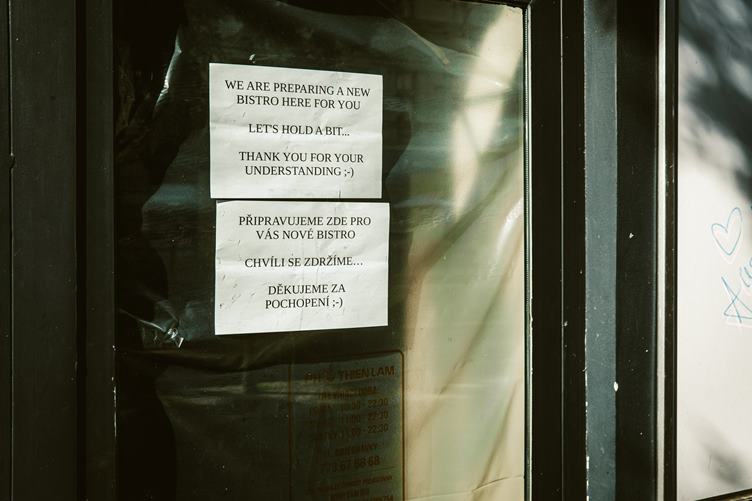 WE ARE PREPARING A NEW
BISTRO HERE FOR YOU
LET'S HOLD A BIT...
THANK YOU FOR YOUR
UNDERSTANDING ;-)
PŘIPRAVUJEME ZDE PRO
VÁS NOVÉ BISTRO
CHVÍLI SE ZDRŽÍME...
DĚKUJEME ZA
POCHOPENÍ ;-)
THIEN LAM
10:30 - 22:30
11:00 - 22:30
11:00 - 22:30